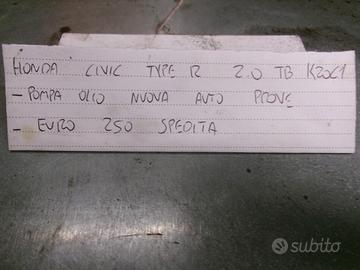 HONDA CIVIC TYPE R 2.0 TB K20C1
- POMPA OLIO NUOVA AUTO PROVE
- EURO 250 SPEDITA
subito